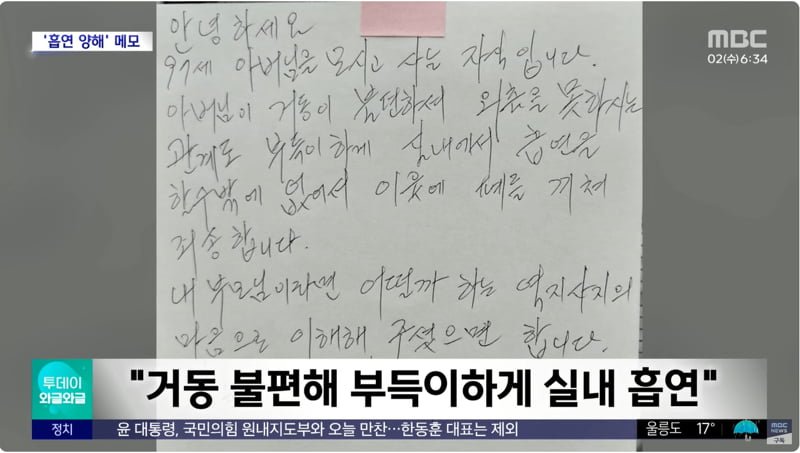 '흡연 양해' 메모
MBC
02(수)6:34
안녕하세요
97세 아버님을 모시고 사는 자식입니다.
아버님이 거동이 불편하셔 외출을 못하시는
관계로 부득이하게 실내에서 흡연을
할수밖에 없어서 이웃에 폐를 끼쳐
죄송합니다.
내 부모님이라면 어떨까 하는 역지사지의
마음으로 이해해 주셨으면 합니다.
투데이
와글와글
"거동 불편해 부득이하게 실내 흡연"
정치
윤 대통령, 국민의힘 원내지도부와 오늘 만찬…한동훈 대표는 제외
울릉도 17°
MBC
NEWS
구독